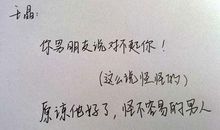 于晶：
你男朋友说对不起你！
（这么说怪怪的）
原谅他好了，怪不容易的男人